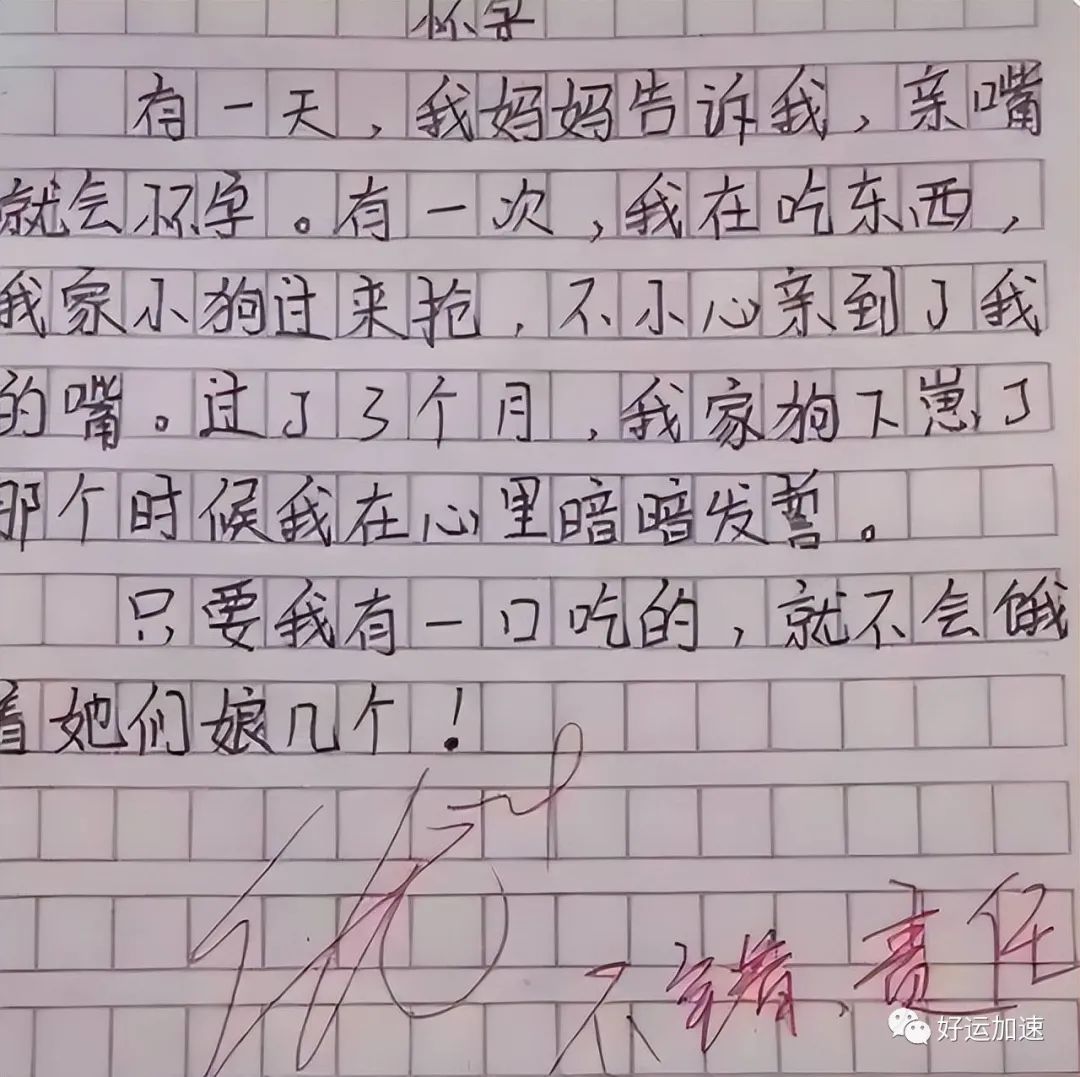 怀孕
有一天，我妈妈告诉我，亲嘴
就会怀孕。有一次，我在吃东西，
我家小狗过来抢，不小心亲到了我
的嘴。过了3个月，我家狗下崽了
那个时候我在心里暗暗发誓。
只要我有一口吃的，就不会饿
着她们娘几个！
责任
好运加速